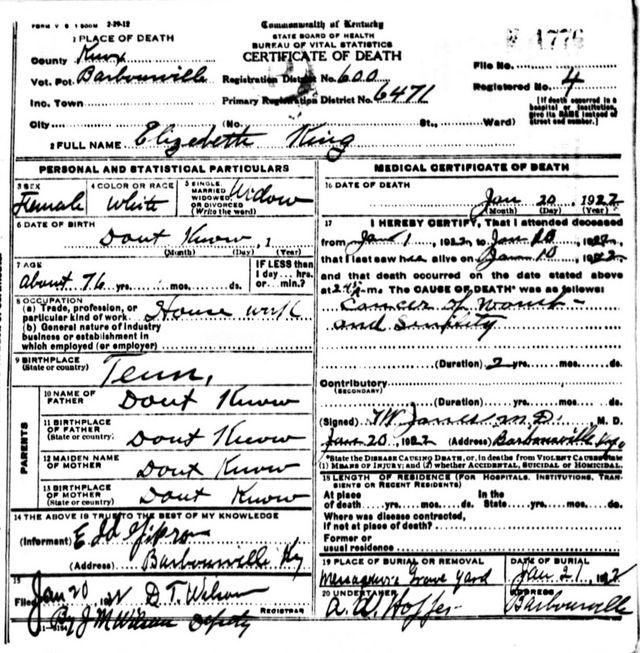 FORM V S 1 500M 2-29-12
Commonwealth of Kentucky
STATE BOARD OF HEALTH
BUREAU OF VITAL STATISTICS
CERTIFICATE OF DEATH
1 PLACE OF DEATH
County Knox
Vot. Pct. Barbourville
Inc. Town
City
Registration District No. 600
Primary Registration District No. 6471
(No. St., Ward)
File No. 1776
Registered No. 4
[If death occurred in a hospital or institution, give its NAME instead of street and number.]
2 FULL NAME Elizebeth King
PERSONAL AND STATISTICAL PARTICULARS
3 SEX Female
4 COLOR OR RACE White
5 SINGLE, MARRIED, WIDOWED, OR DIVORCED (Write the word) Widow
6 DATE OF BIRTH
Dont Know, 1
(Month) (Day) (Year)
7 AGE
about 76 yrs. mos. ds.
IF LESS than 1 day... hrs. or min.?
8 OCCUPATION
(a) Trade, profession, or particular kind of work House work
(b) General nature of industry business or establishment in which employed (or employer)
9 BIRTHPLACE
(State or country) Tenn,
PARENTS
10 NAME OF FATHER Dont Know
11 BIRTHPLACE OF FATHER (State or country) Dont Know
12 MAIDEN NAME OF MOTHER Dont Know
13 BIRTHPLACE OF MOTHER (State or country) Dont Know
14 THE ABOVE IS TRUE TO THE BEST OF MY KNOWLEDGE
(Informant) E
(Address) Barbourville Ky
15
Filed Jan 20 D.T. Wilson
REGISTRAR
By J M Wilson Deputy
MEDICAL CERTIFICATE OF DEATH
16 DATE OF DEATH
Jan 20, 1922
(Month) (Day) (Year)
17 I HEREBY CERTIFY, That I attended deceased
from Jan 1, 1922, to Jan 20 1922,
that I last saw her alive on Jan 10 1922
and that death occurred on the date stated above
at m. The CAUSE OF DEATH* was as follows:
Cancer of Womb
and
(Duration) 2 yrs. mos. ds.
Contributory
(SECONDARY)
(Duration) yrs. mos. ds.
(Signed) M.D. M. D.
Jan 20, 1922 (Address) Barbourville
*State the DISEASE CAUSING DEATH, or, in deaths from VIOLENT CAUSES state (1) MEANS OF INJURY; and (2) whether ACCIDENTAL, SUICIDAL OR HOMICIDAL.
18 LENGTH OF RESIDENCE (FOR HOSPITALS, INSTITUTIONS, TRANSIENTS OR RECENT RESIDENTS)
At place of death yrs. mos. ds. In the State yrs. mos. ds.
Where was disease contracted,
If not at place of death?
Former or usual residence
19 PLACE OF BURIAL OR REMOVAL
Grave Yard
DATE OF BURIAL
Jan 21, 192
20 UNDERTAKER
ADDRESS
Barbourville